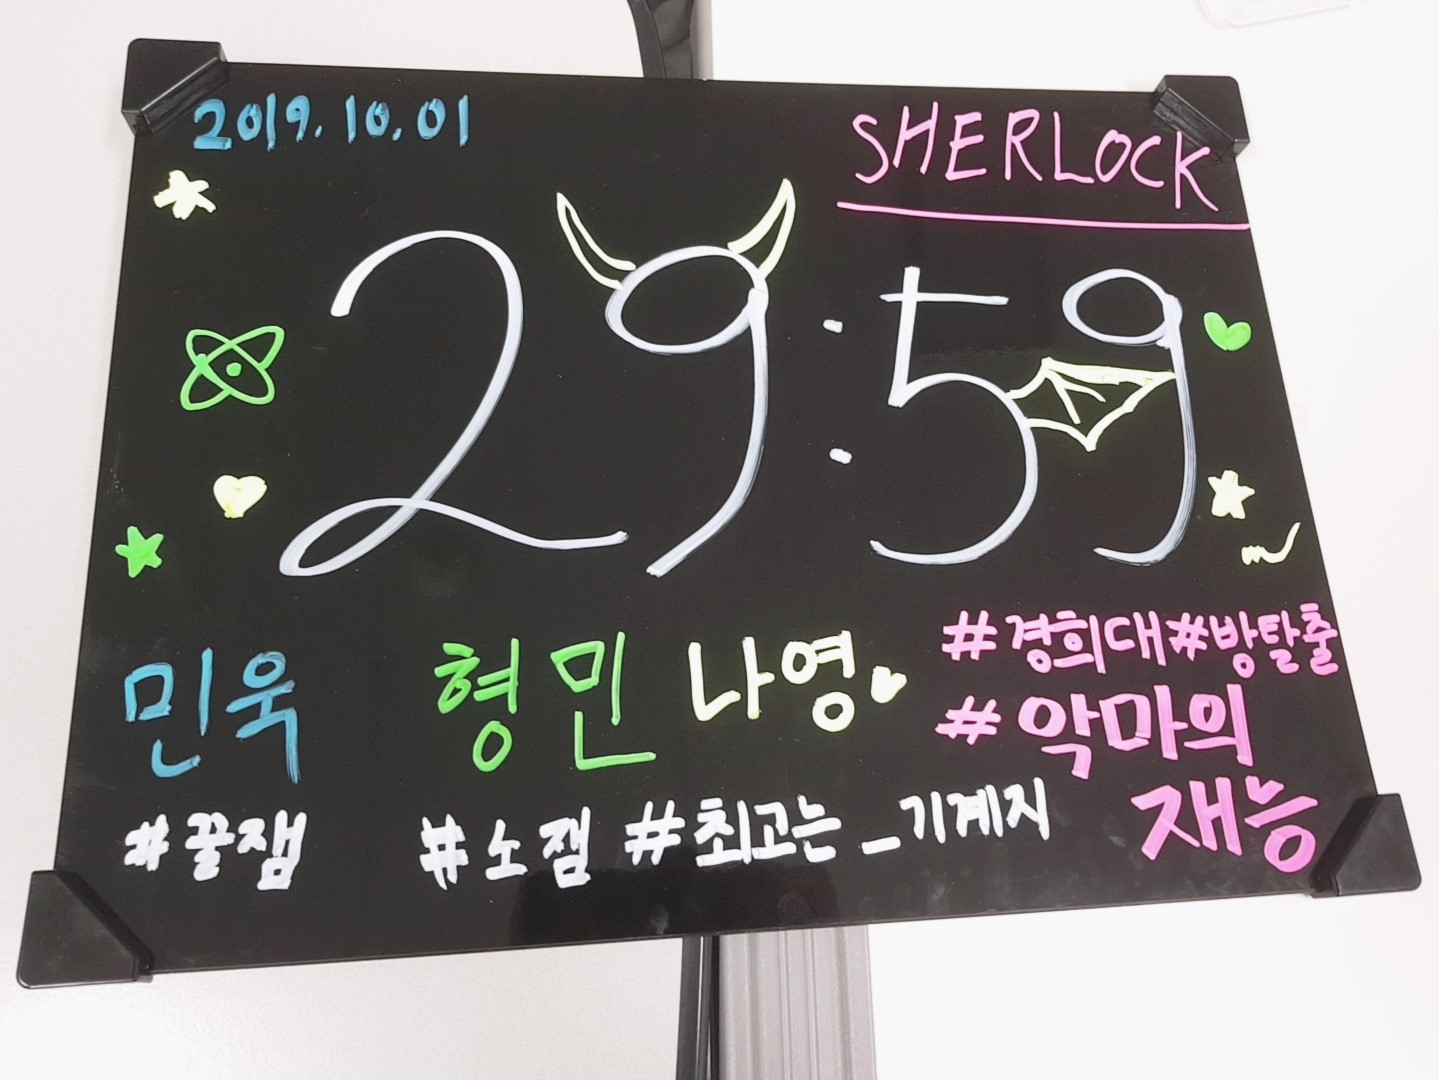 2019.10.01
SHERLOCK
29:59
민욱 형민 나영
#경희대 #방탈출
#악마의
재능
#꿀잼 #노잼 #최고는_기계지